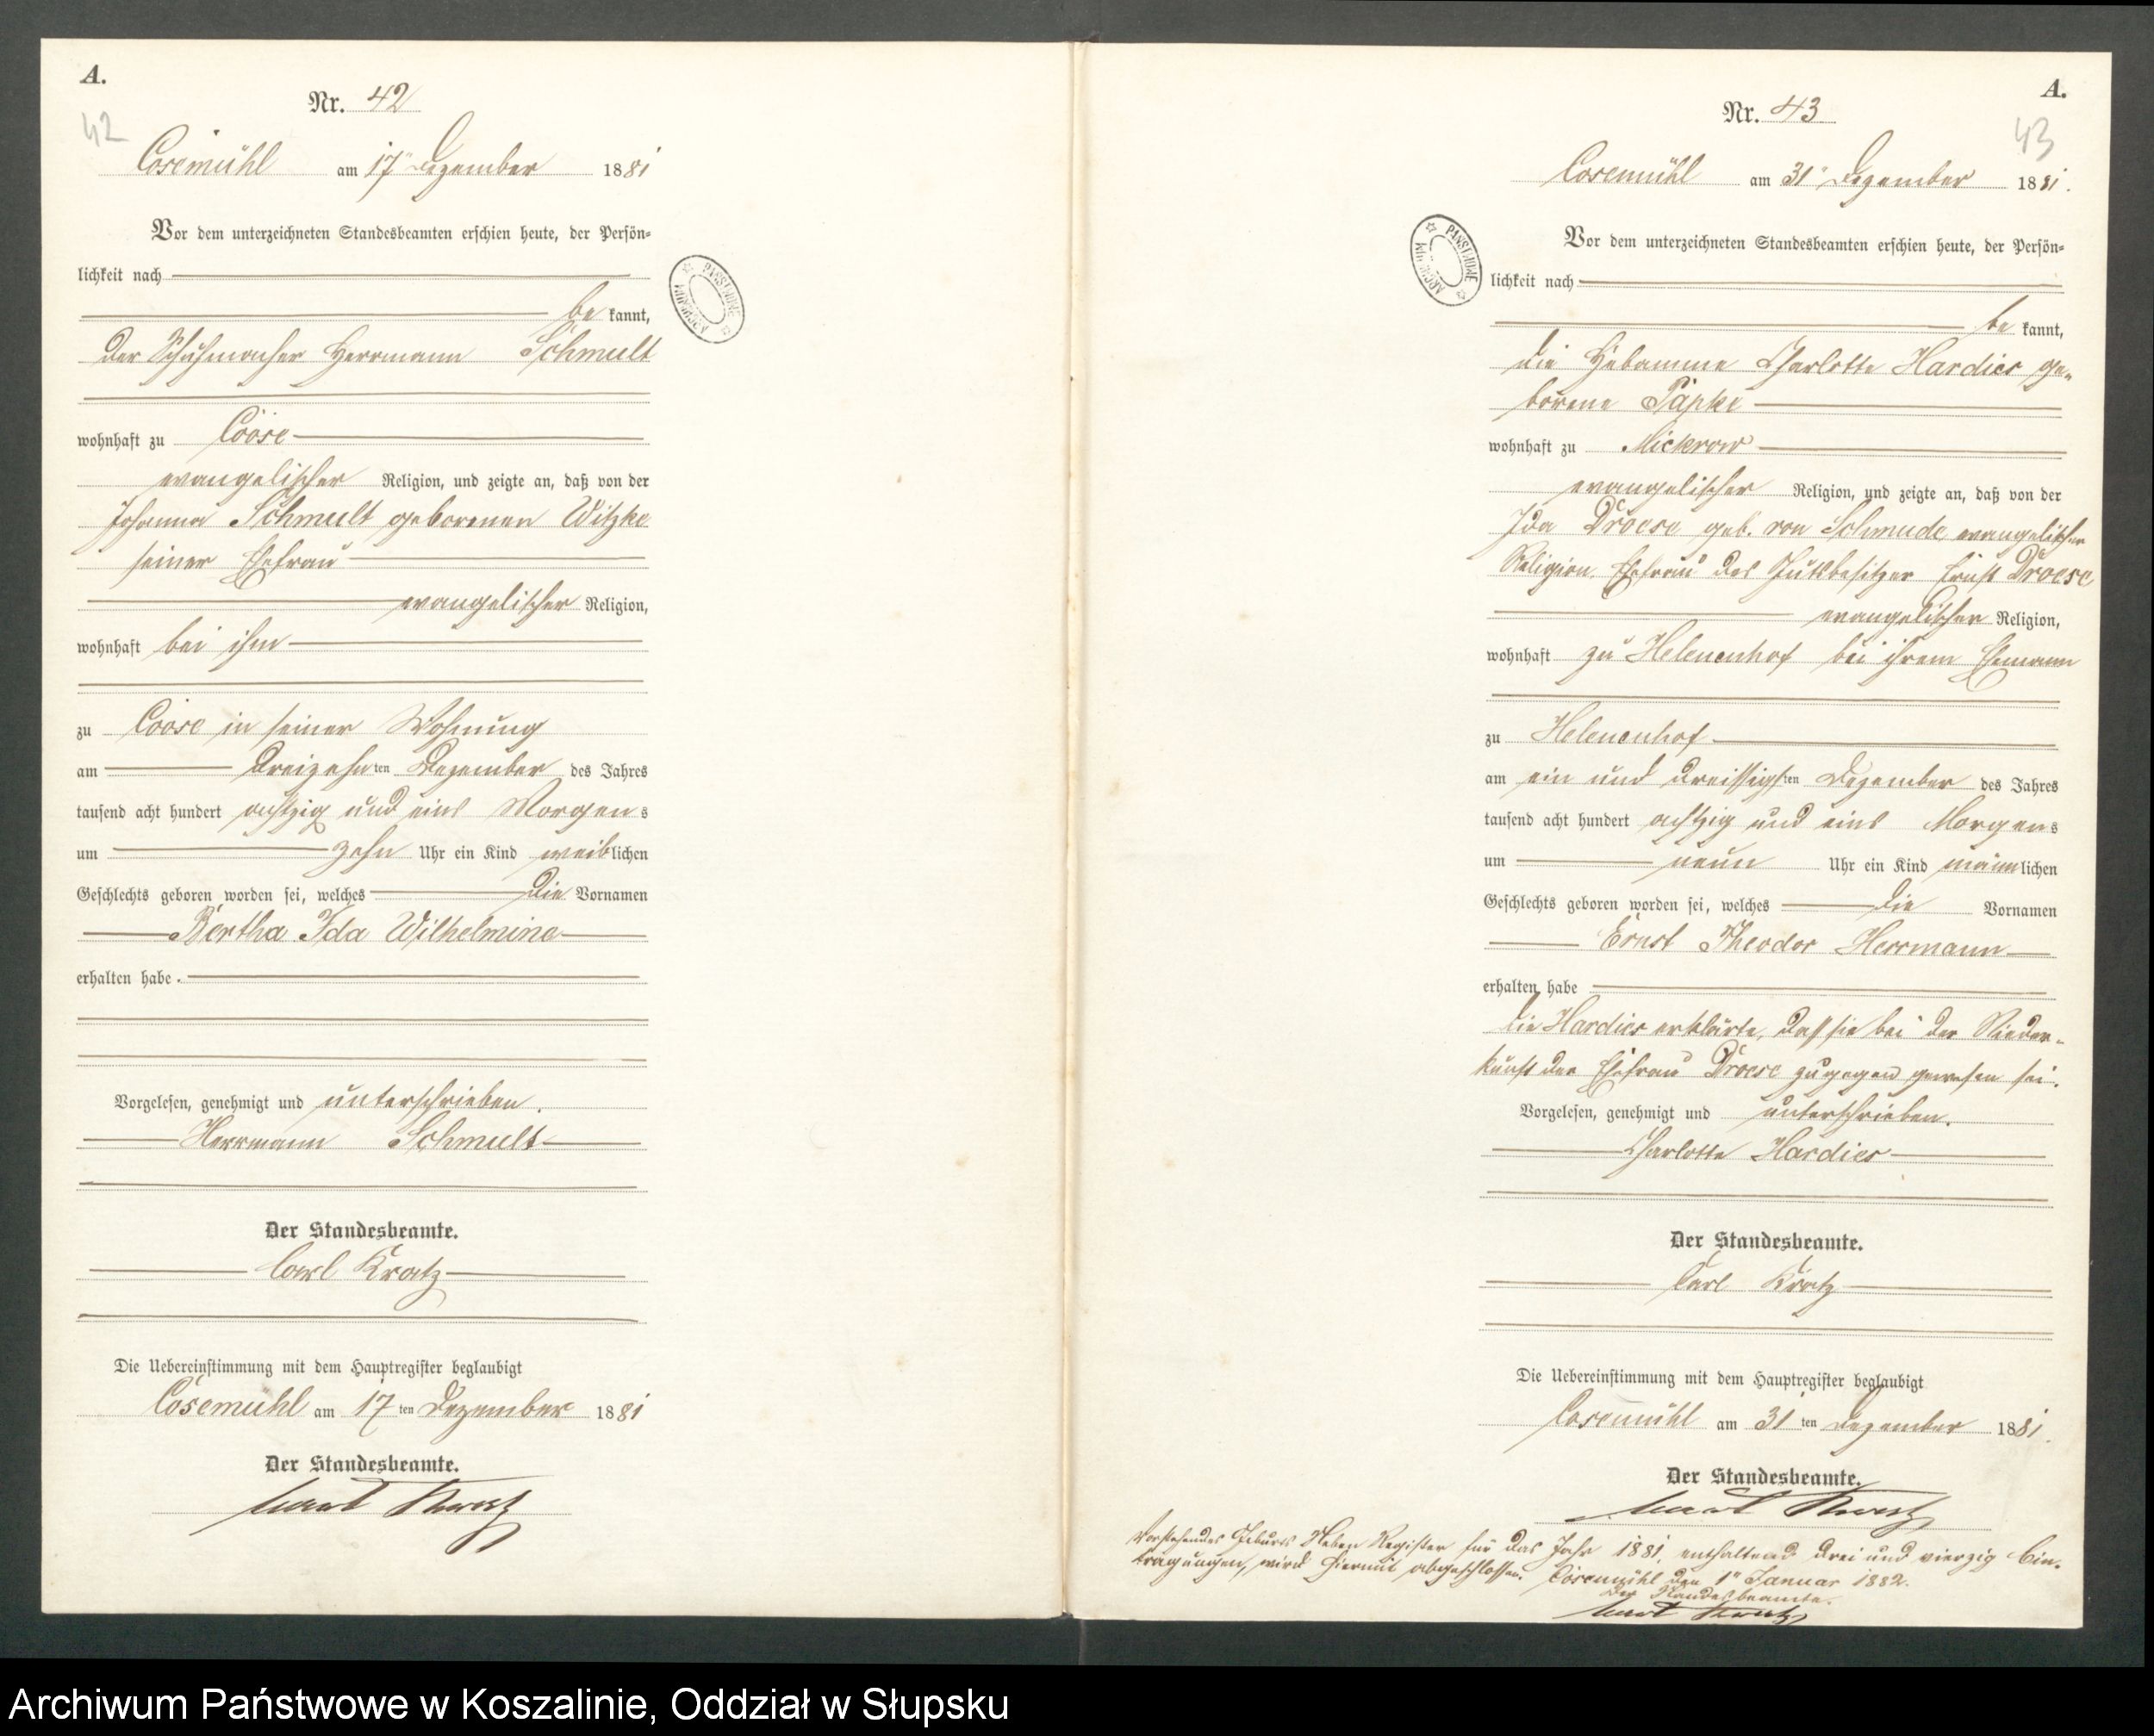 A.
Nr. 42
42
Cosemühl am 17" Dezember 1881
Vor dem unterzeichneten Standesbeamten erschien heute, der Persön-
lichkeit nach
be kannt,
der Schuhmacher Herrmann Schmult
wohnhaft zu Coose
evangelischer Religion, und zeigte an, daß von der
Johanna Schmult geborenen Witzke
seiner Ehefrau
evangelischer Religion,
wohnhaft bei ihm
zu Coose in seiner Wohnung
am dreizehnten Dezember des Jahres
tausend acht hundert achtzig und eins Morgens
um zehn Uhr ein Kind weiblichen
Geschlechts geboren worden sei, welches die Vornamen
Bertha Ida Wilhelmine
erhalten habe.
Vorgelesen, genehmigt und unterschrieben.
Herrmann Schmult
Der Standesbeamte.
Carl Kratz
Die Uebereinstimmung mit dem Hauptregister beglaubigt
Cosemühl am 17 ten Dezember 1881
Der Standesbeamte.
Carl Kratz
ARCHIWUM PAŃSTWOWE
A.
Nr. 43
43
Cosemühl am 31" Dezember 1881.
ARCHIWUM PAŃSTWOWE
Vor dem unterzeichneten Standesbeamten erschien heute, der Persön-
lichkeit nach
be kannt,
die Hebamme Charlotte Hardier ge-
borene Papke
wohnhaft zu Mickrow
evangelischer Religion, und zeigte an, daß von der
Ida Droese geb. von Schmude, evangelischer
Religion, Ehefrau des Gutsbesitzer Ernst Droese
evangelischer Religion,
wohnhaft zu Helenenhof bei ihrem Ehemann
zu Helenenhof
am ein und dreissigsten Dezember des Jahres
tausend acht hundert achtzig und eins Morgens
um neun Uhr ein Kind männlichen
Geschlechts geboren worden sei, welches die Vornamen
Ernst Theodor Herrmann
erhalten habe
die Hardier erklärte, daß sie bei der Nieder-
kunft der Ehefrau Droese zugegen gewesen sei.
Vorgelesen, genehmigt und unterschrieben.
Charlotte Hardier
Der Standesbeamte.
Carl Kratz
Die Uebereinstimmung mit dem Hauptregister beglaubigt
Cosemühl am 31 ten Dezember 1881.
Der Standesbeamte.
Carl Kratz
Vorstehendes Geburts Neben Register für das Jahr 1881, enthaltend drei und vierzig Ein-
tragungen, wird hiermit abgeschlossen. Cosemühl den 1" Januar 1882.
Der Standesbeamte.
Carl Kratz
Archiwum Państwowe w Koszalinie, Oddział w Słupsku